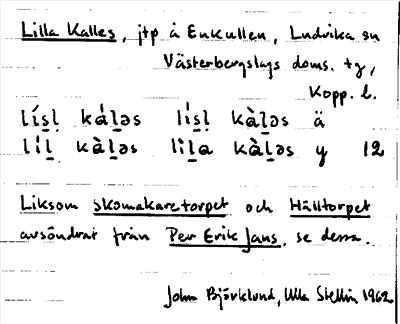 Lilla Kalles, jtp å Enkullen, Ludvika sn
Västerbergslags doms. tg,
Kopp. l.
lísḷ káləs lísḷ kàləs ä
líl kàləs lìla kàləs y 12
Liksom Skomakaretorpet och Hälltorpet
avsöndrat från Per Erik Jans. se dessa.
John Björklund, Ulla Stellin 1962